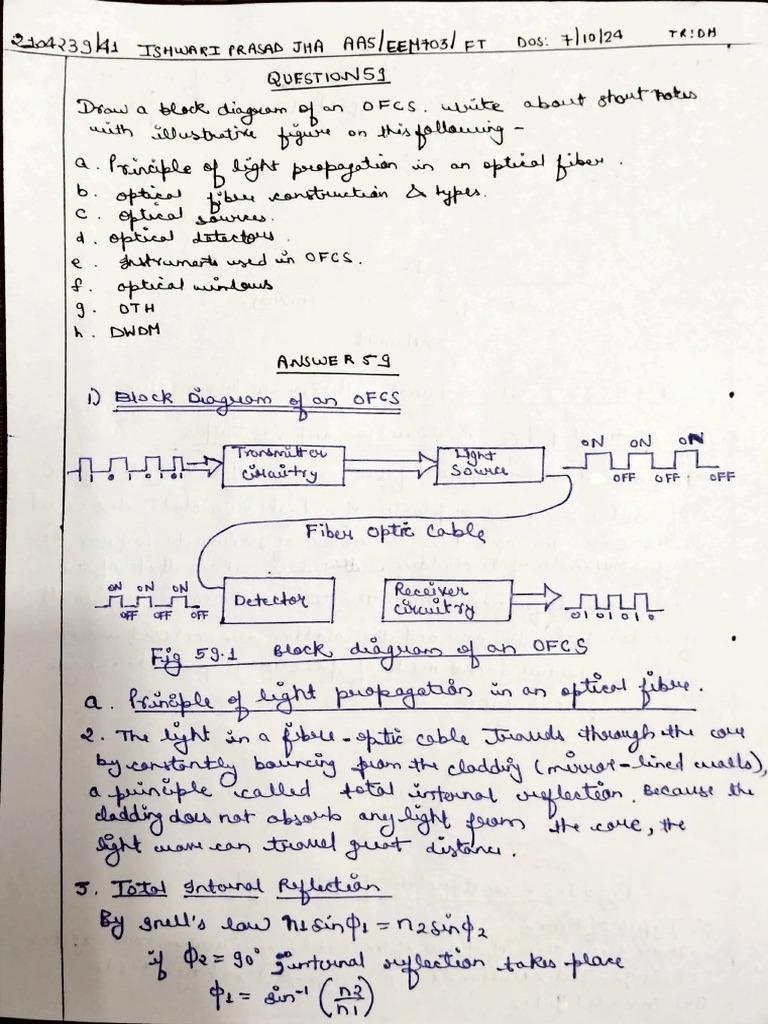 2104239/41 ISHWARI PRASAD JHA AAS/EEM703/FT DOS: 7/10/24 TR:DM
QUESTION 59
Draw a block diagram of an OFCS. write about short notes
with illustrative figure on this following -
a. Principle of light propagation in an optical fiber.
b. optical fibre construction & types.
c. optical sources.
d. optical detectors.
e. Instruments used in OFCS.
f. optical windows
g. OTH
h. DWDM
ANSWER 59
1) Block Diagram of an OFCS
1 0 1 0 1 0 1
Transmitter circuitry
Light Source
ON ON ON
OFF OFF OFF
Fiber Optic Cable
ON ON ON
OFF OFF OFF
Detector
Receiver circuitry
0 1 0 1 0 1 0
Fig 59.1 Block diagram of an OFCS
a. Principle of light propagation in an optical fibre.
2. The light in a fibre-optic cable travels through the core
by constantly bouncing from the cladding (mirror-lined walls),
a principle called total internal reflection. Because the
cladding does not absorb any light from the core, the
light wave can travel great distance.
3. Total Internal Reflection
By snell's law n1 sin ϕ1 = n2 sin ϕ2
if ϕ2 = 90° internal reflection takes place
ϕ1 = sin⁻¹ (n2/n1)